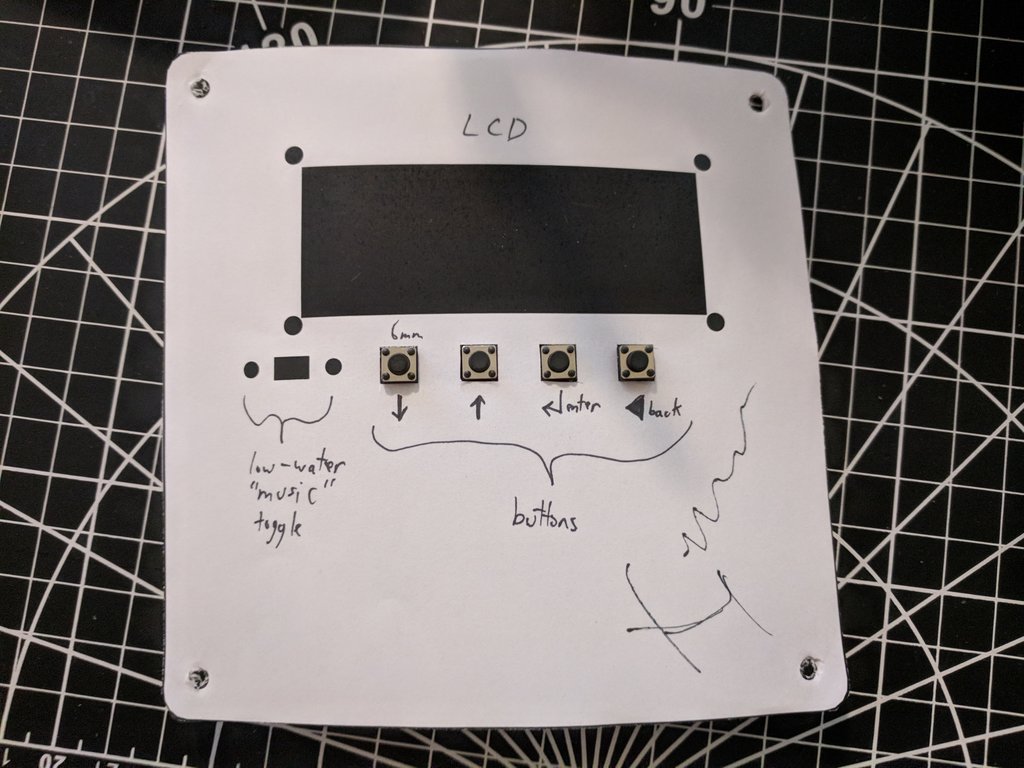 90
120
LCD
6mm
↓ ↑ ↲ enter ◀ back
low-water
"music"
toggle
buttons
20